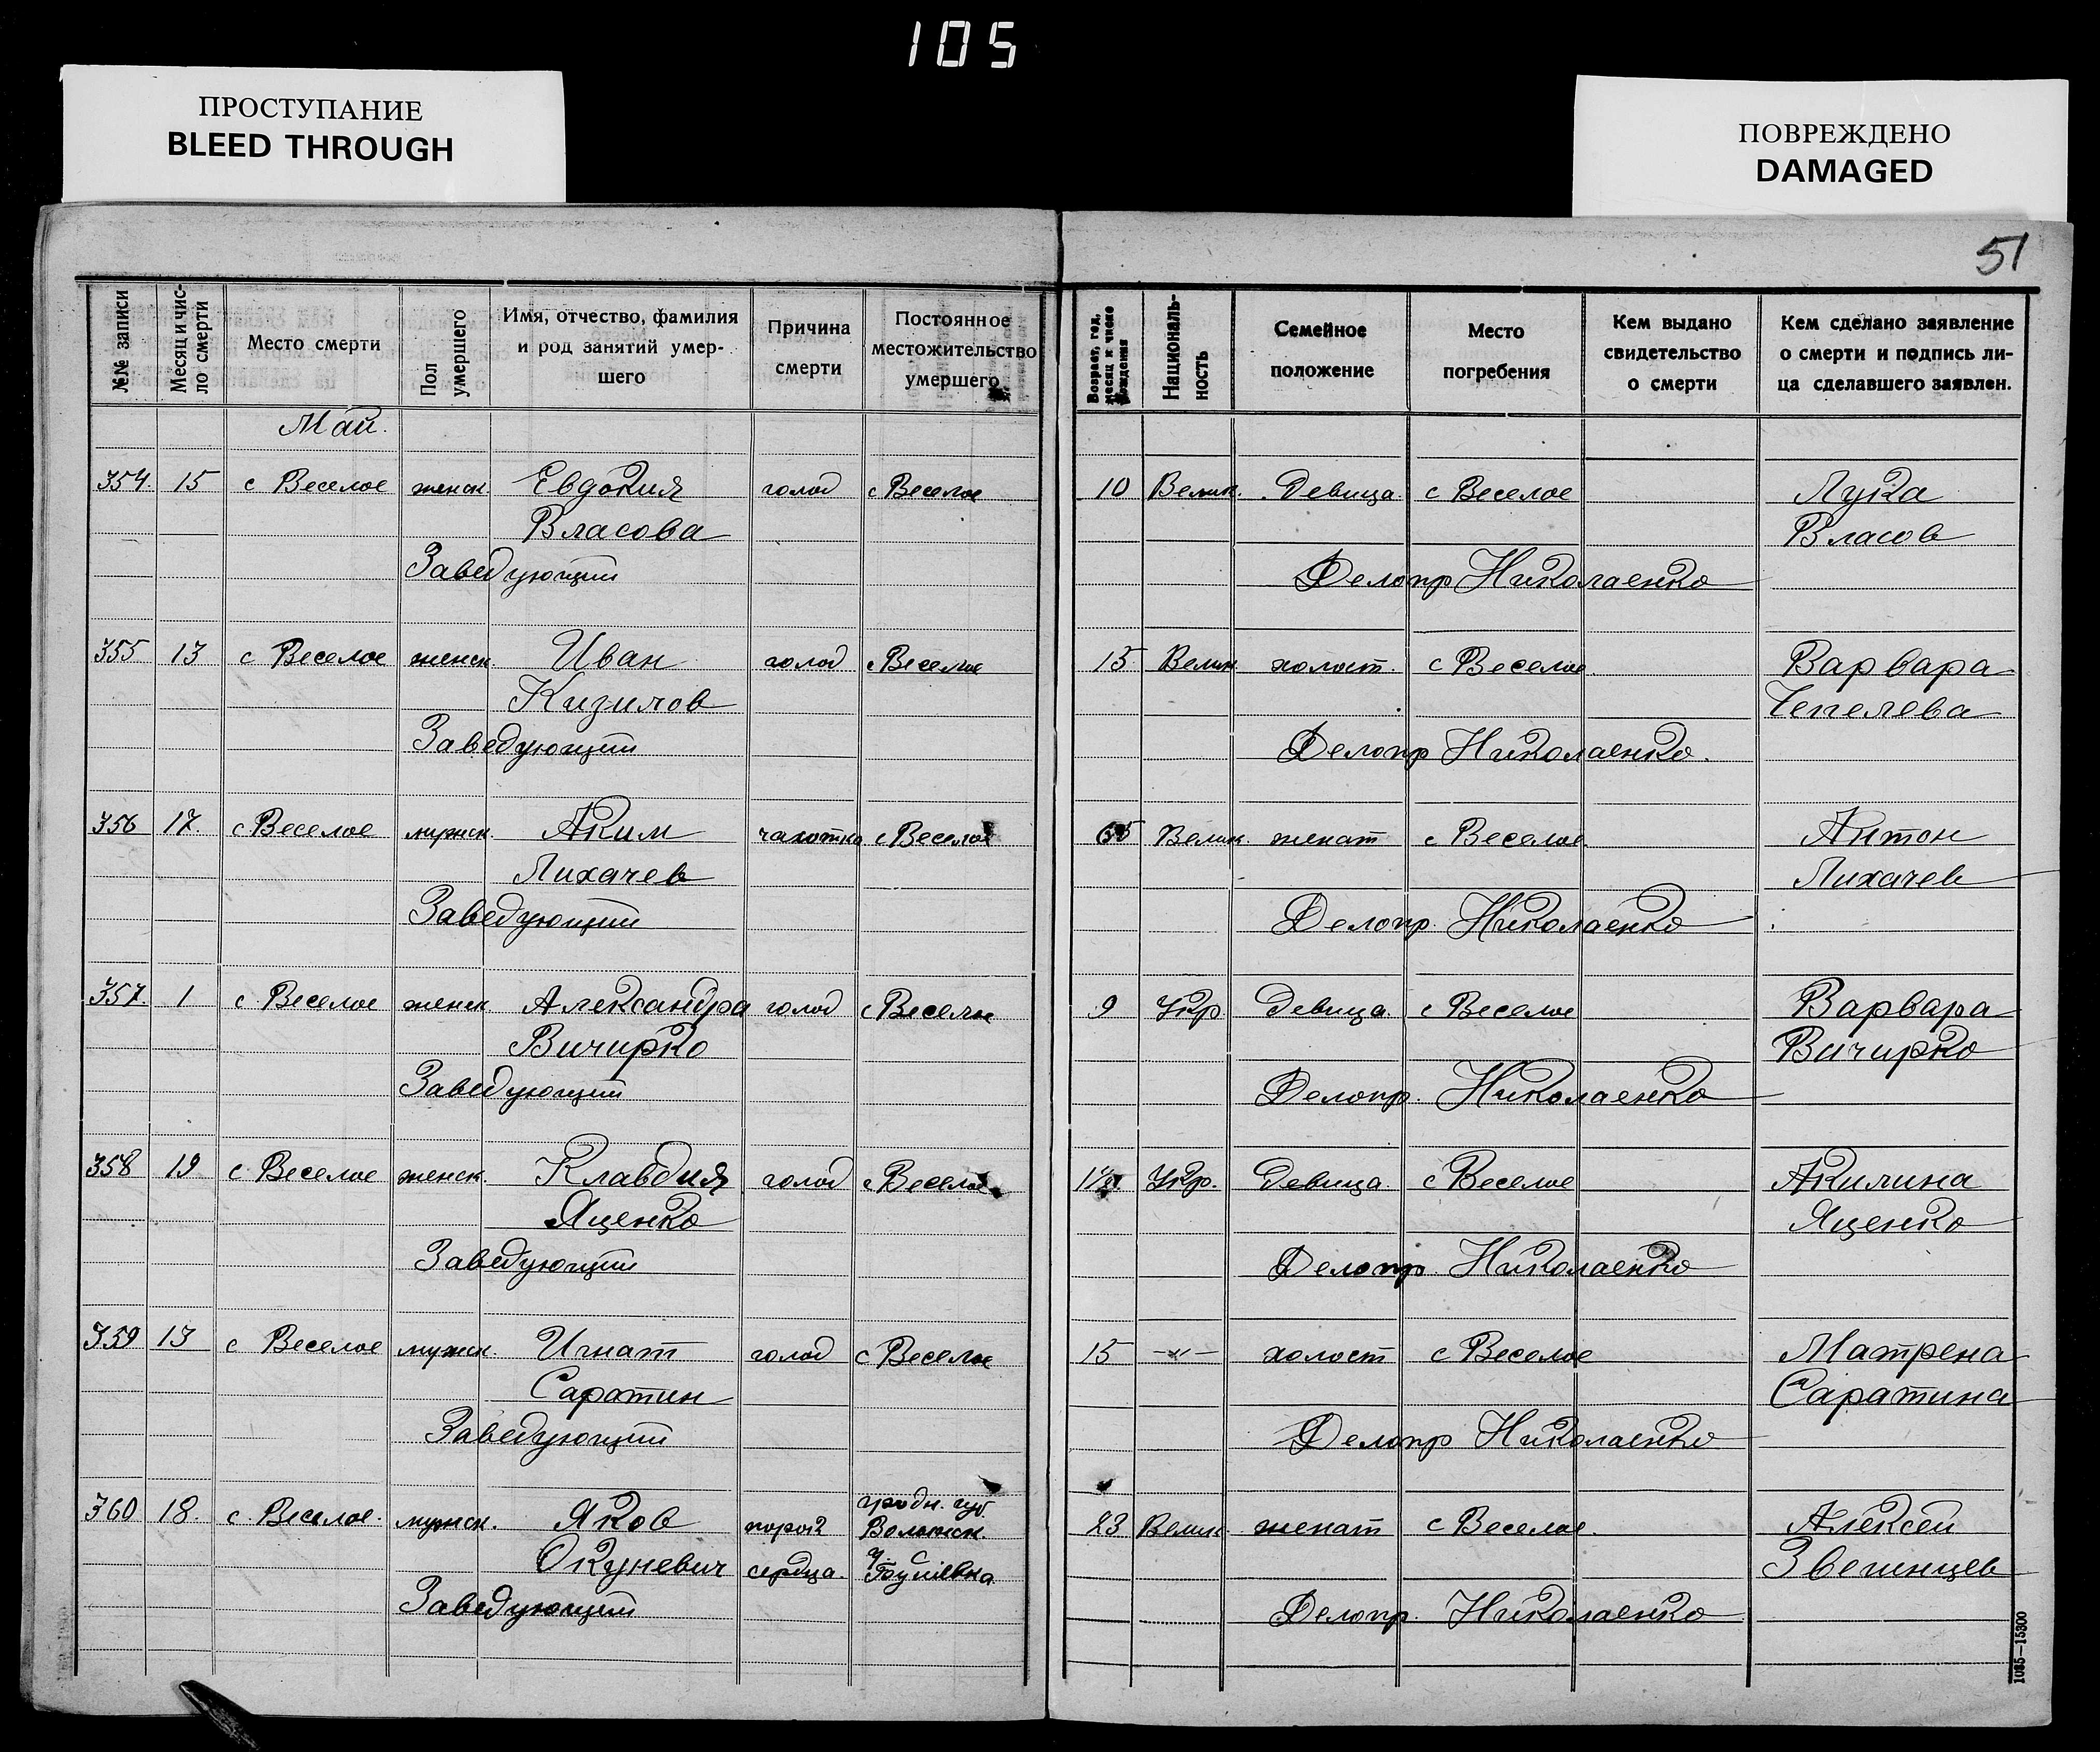 105
ПРОСТУПАНИЕ
BLEED THROUGH
ПОВРЕЖДЕНО
DAMAGED
51
№№ записи
Месяц и чис-
ло смерти
Место смерти
Пол
умершего
Имя, отчество, фамилия
и род занятий умер-
шего
Причина
смерти
Постоянное
местожительство
умершего
Возраст, год,
месяц и число
рождения
Националь-
ность
Семейное
положение
Место
погребения
Кем выдано
свидетельство
о смерти
Кем сделано заявление
о смерти и подпись ли-
ца сделавшего заявлен.
Май.
354. 15 с Веселое женск Евдокия голод с Веселое 10 Велик. Девица. с Веселое Лука
Власова Власов
Заведующий Делопр Николаенко
355 13 с Веселое женск. Иван голод с Веселое 15 Велик. холост. с Веселое Варвара
Кизилов Чепелева
Заведующий Делопр Николаенко.
356 17. с Веселое мужск. Аким чахотка с Веселое 65 Велик. женат с Веселое Антон
Лихачев Лихачев
Заведующий Делопр. Николаенко
357. 1 с Веселое женск Александра голод с Веселое 9 Укр Девица. с Веселое Варвара
Вичирко Вичирко
Заведующий Делопр. Николаенко
358 19 с Веселое женск. Клавдия голод с Веселое Укр. Девица. с Веселое Акилина
Яценко Яценко
Заведующий Делопр. Николаенко
359 13 с Веселое мужск. Игнат голод с Веселое 15 -"- холост с Веселое Матрена
Саратин Саратина
Заведующий Делопр Николаенко
360 18. с. Веселое. мужск. Яков порок гродн. губ. 23 Велик женат с Веселое. Алексей
Окуневич сердца. Звегинцев
Заведующий Делопр. Николаенко
1085—15300